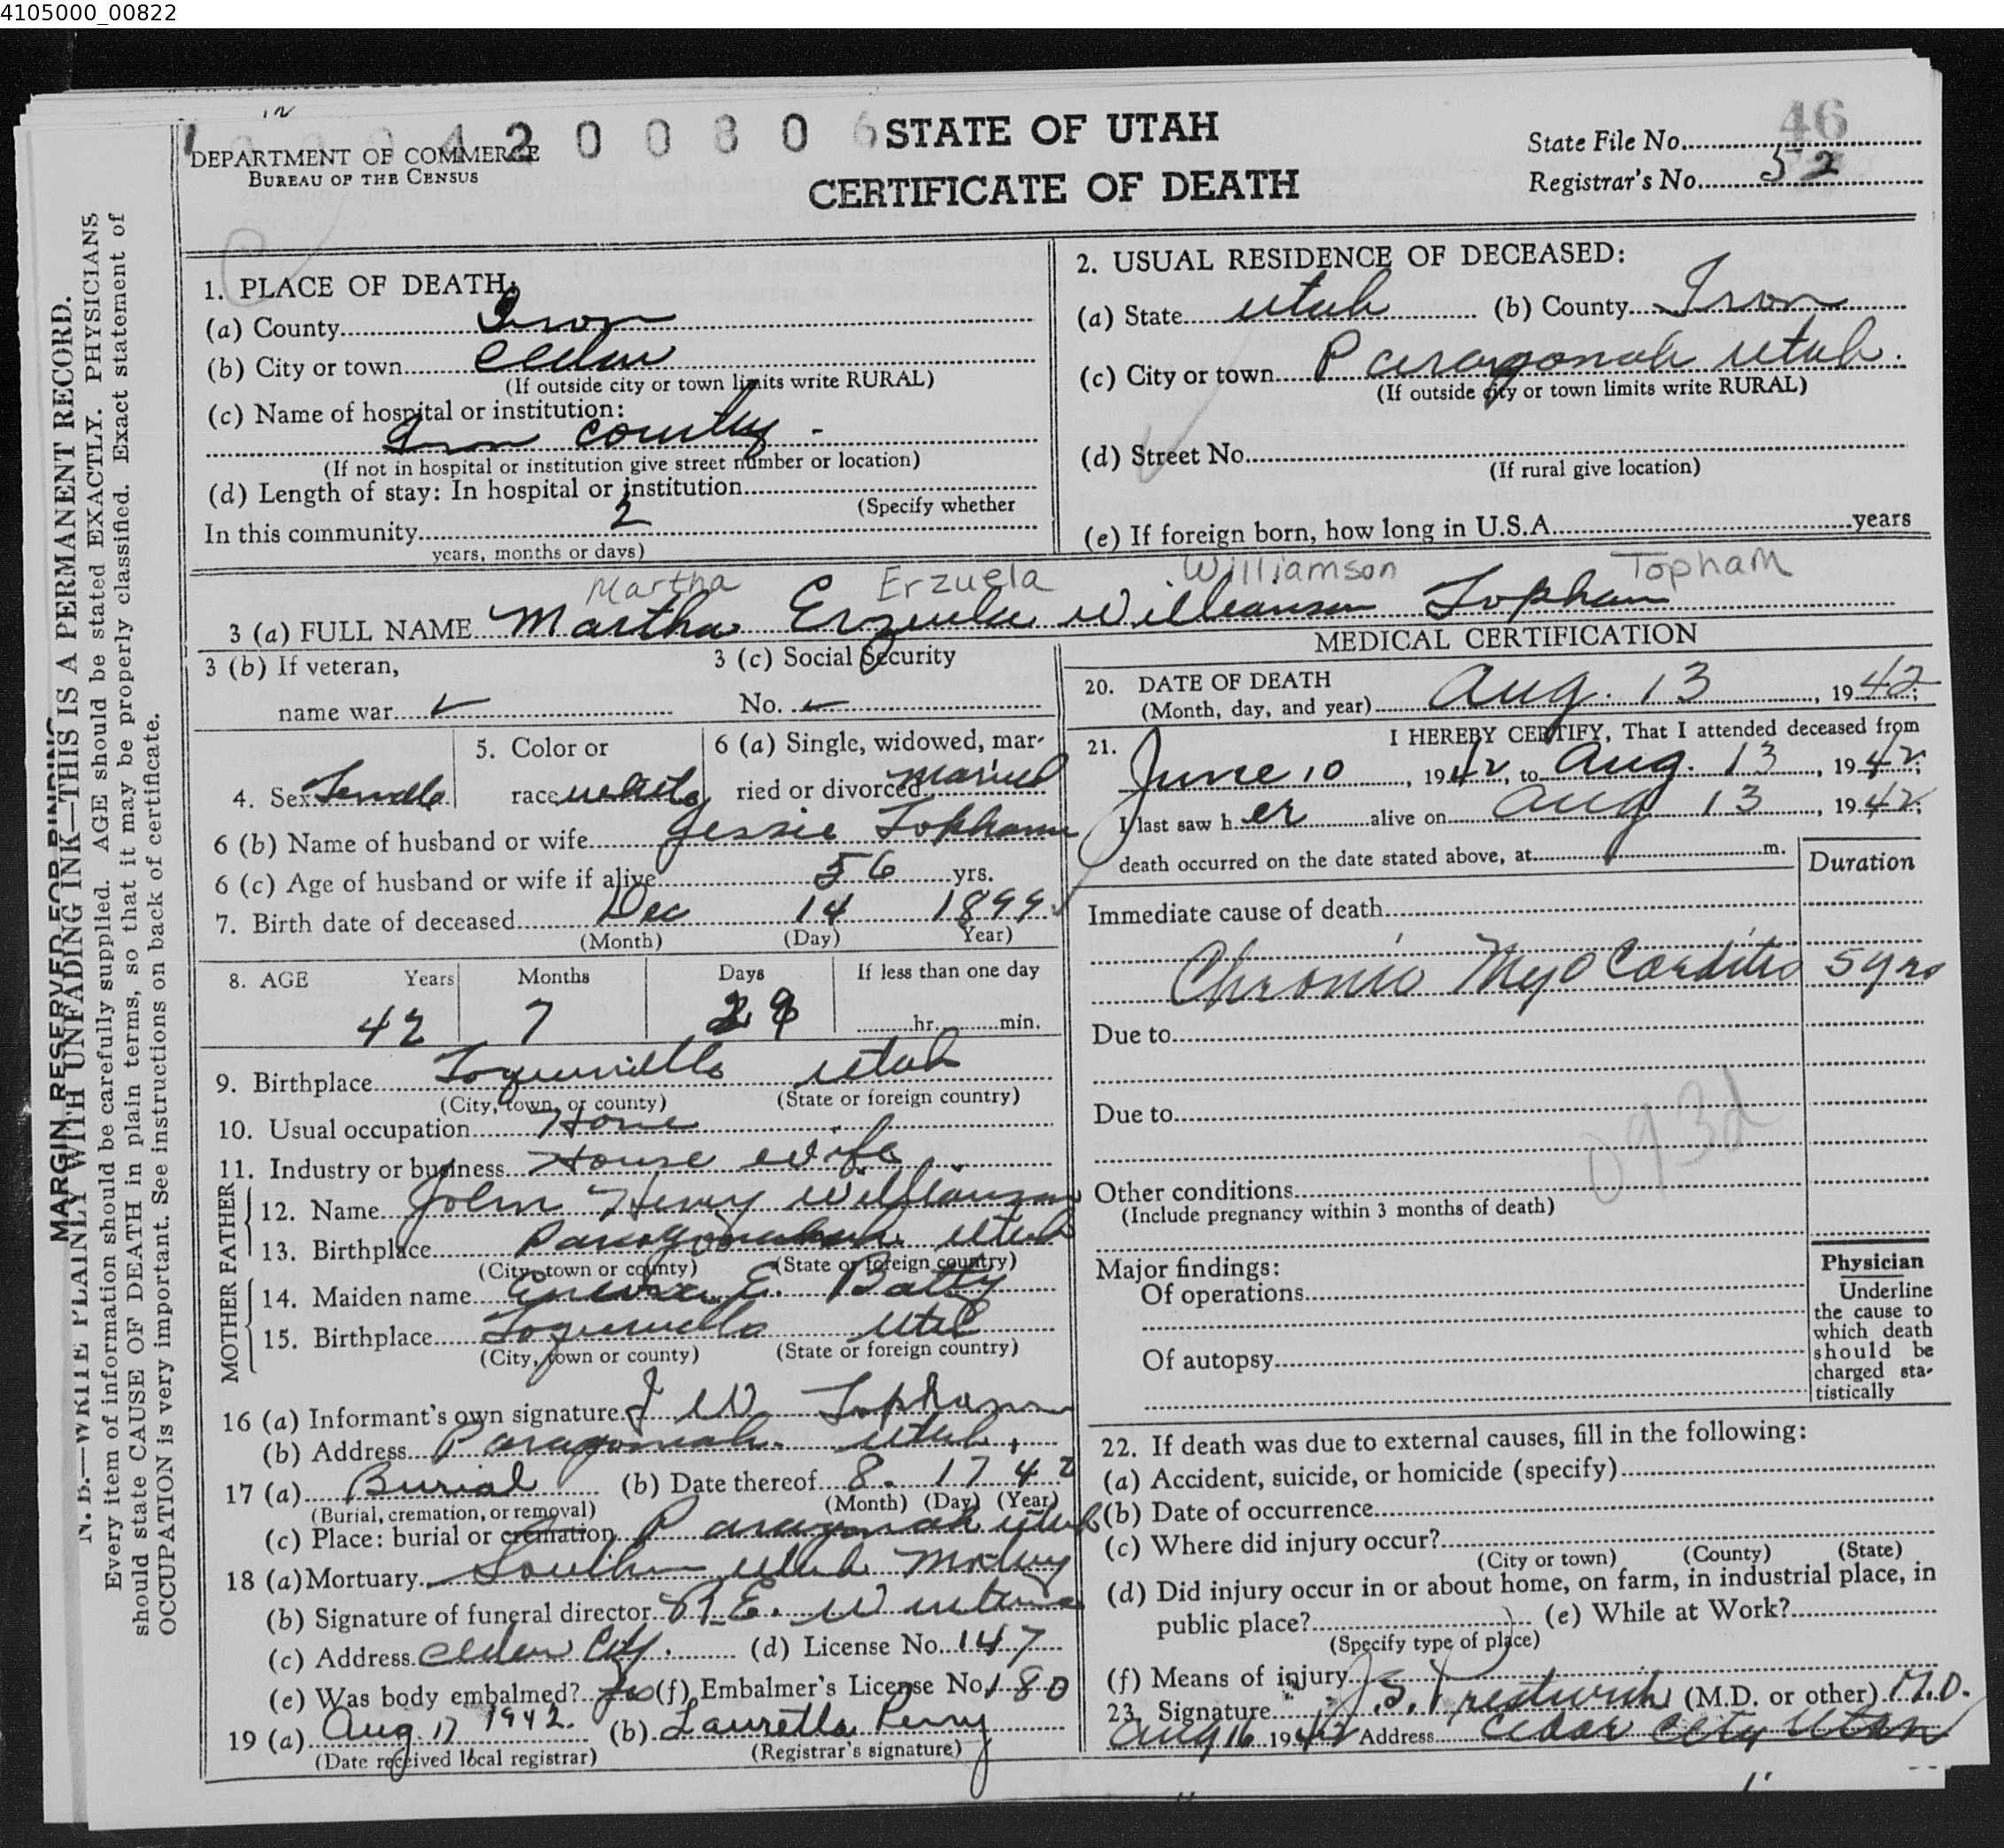 4105000_00822
in
4 2 0 0 8 0 6
STATE OF UTAH
CERTIFICATE OF DEATH
DEPARTMENT OF COMMERCE
BUREAU OF THE CENSUS
State File No. 46
Registrar's No. 52
MARGIN RESERVED FOR BINDING
N. B.—WRITE PLAINLY WITH UNFADING INK—THIS IS A PERMANENT RECORD.
Every item of information should be carefully supplied. AGE should be stated EXACTLY. PHYSICIANS
should state CAUSE OF DEATH in plain terms, so that it may be properly classified. Exact statement of
OCCUPATION is very important. See instructions on back of certificate.
1. PLACE OF DEATH:
(a) County Iron
(b) City or town Cedar
(If outside city or town limits write RURAL)
(c) Name of hospital or institution:
Iron County -
(If not in hospital or institution give street number or location)
(d) Length of stay: In hospital or institution
(Specify whether
In this community 2
years, months or days)
2. USUAL RESIDENCE OF DECEASED:
(a) State Utah (b) County Iron
(c) City or town Paragonah Utah.
(If outside city or town limits write RURAL)
(d) Street No.
(If rural give location)
(e) If foreign born, how long in U.S.A. years
Martha Erzuela Williamson Topham
3 (a) FULL NAME Martha Erzuela Williamson Topham
3 (b) If veteran,
name war
3 (c) Social Security
No.
4. Sex Female
5. Color or
race white
6 (a) Single, widowed, mar-
ried or divorced married
6 (b) Name of husband or wife Jessie Topham
6 (c) Age of husband or wife if alive 56 yrs.
7. Birth date of deceased Dec 14 1899
(Month) (Day) Year)
8. AGE Years Months Days If less than one day
42 7 29 hr. min.
9. Birthplace Toquerville Utah
(City, town, or county) (State or foreign country)
10. Usual occupation Home
11. Industry or business House wife
FATHER
12. Name John Henry Williamson
13. Birthplace Paragonah Utah
(City, town or county) (State or foreign country)
MOTHER
14. Maiden name E. Batty
15. Birthplace Toquerville Utah
(City, town or county) (State or foreign country)
16 (a) Informant's own signature J W Topham
(b) Address Paragonah. Utah.
17 (a) Burial (b) Date thereof 8. 17 42
(Burial, cremation, or removal) (Month) (Day) (Year)
(c) Place: burial or cremation Paragonah Utah
18 (a) Mortuary Southern Utah Mortuary
(b) Signature of funeral director R. E.
(c) Address Cedar City. (d) License No. 147
(e) Was body embalmed? Yes (f) Embalmer's License No. 180
19 (a) Aug 17 1942. (b) Lauretta Perry
(Date received local registrar) (Registrar's signature)
MEDICAL CERTIFICATION
20. DATE OF DEATH
(Month, day, and year) Aug. 13, 1942;
21. I HEREBY CERTIFY, That I attended deceased from
June 10, 1942, to Aug. 13, 1942;
I last saw her alive on Aug 13, 1942;
death occurred on the date stated above, at m.
Duration
Immediate cause of death
Chronic Myocarditis 5 yrs
Due to
Due to
093d
Other conditions
(Include pregnancy within 3 months of death)
Major findings:
Of operations
Of autopsy
Physician
Underline
the cause to
which death
should be
charged sta-
tistically
22. If death was due to external causes, fill in the following:
(a) Accident, suicide, or homicide (specify)
(b) Date of occurrence
(c) Where did injury occur?
(City or town) (County) (State)
(d) Did injury occur in or about home, on farm, in industrial place, in
public place? (e) While at Work?
(Specify type of place)
(f) Means of injury
23. Signature J. S. Prestwich (M.D. or other) M.D.
Aug 16 1942 Address Cedar City Utah